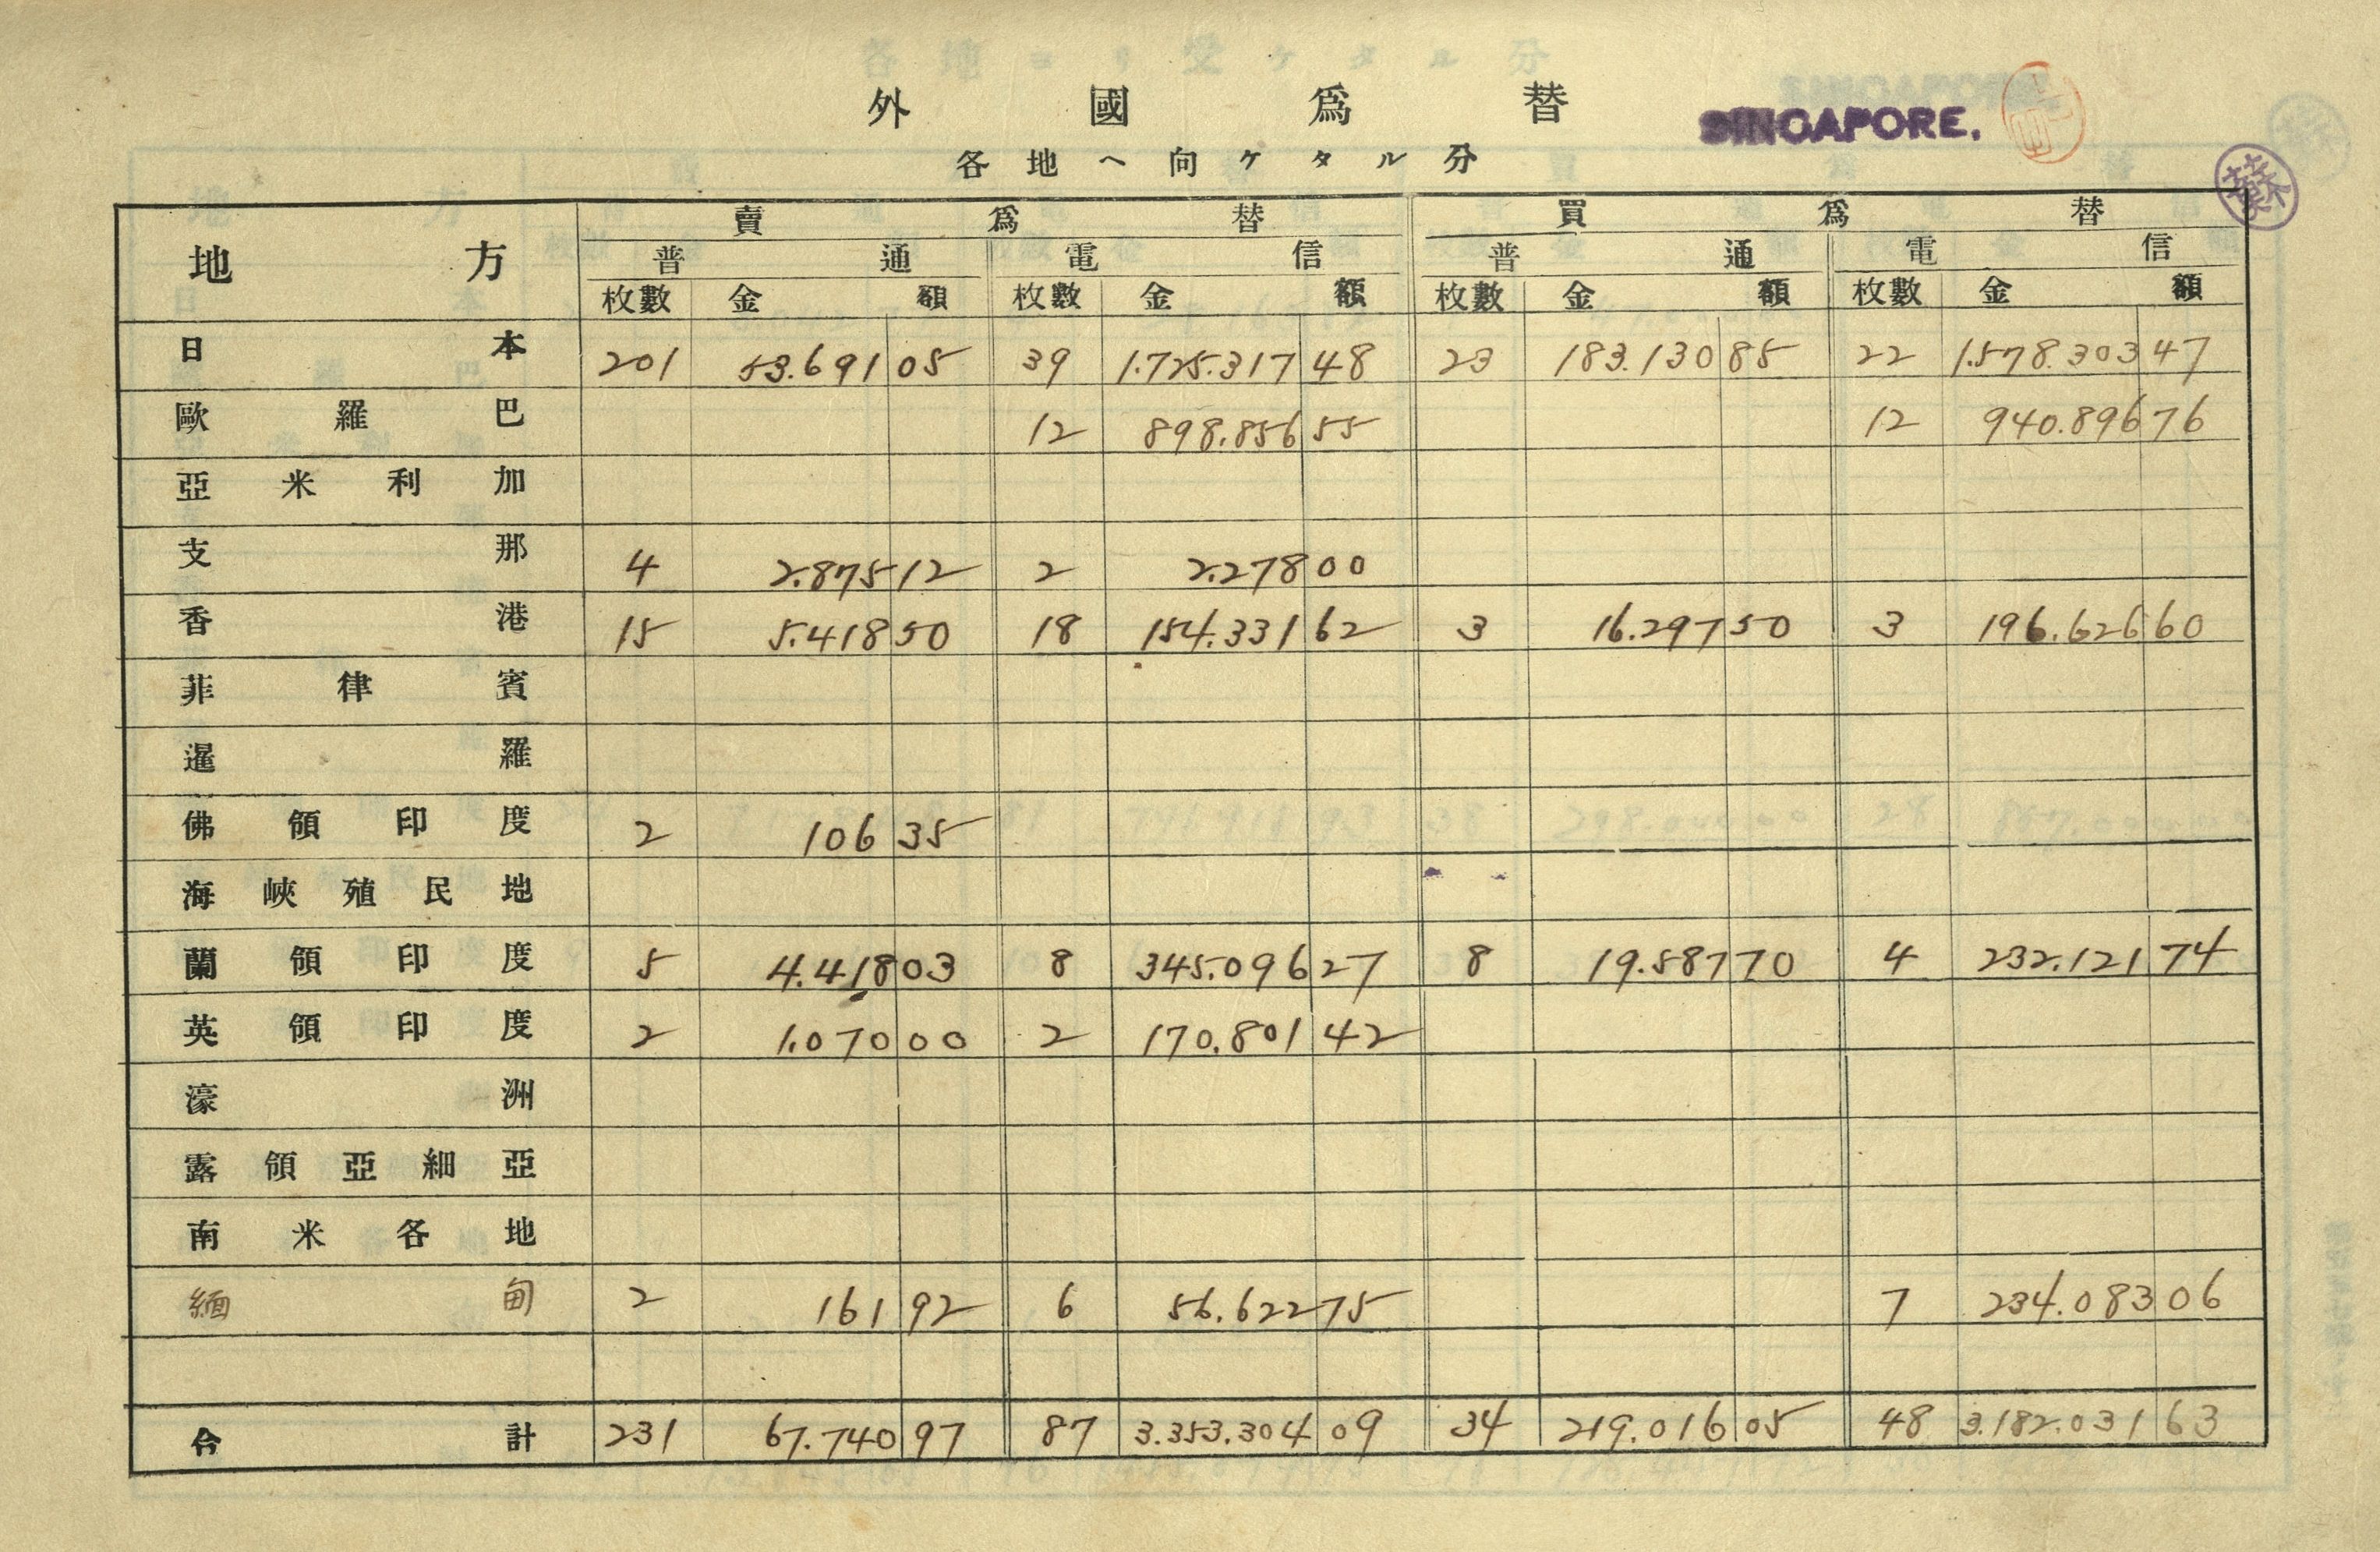 外國爲替
SINGAPORE.
各地ヘ向ケタル分
地方 賣爲替 買爲替
普通 電信 普通 電信
枚數 金額 枚數 金額 枚數 金額 枚數 金額
日本 201 53.691 05 39 1.725.317 48 23 183.130 85 22 1.578.303 47
歐羅巴 12 898.856 55 12 940.896 76
亞米利加
支那 4 2.875 12 2 2.278 00
香港 15 5.418 50 18 154.331 62 3 16.297 50 3 196.626 60
菲律賓
暹羅
佛領印度 2 106 35
海峽殖民地
蘭領印度 5 4.418 03 8 345.096 27 8 19.587 70 4 232.121 74
英領印度 2 1.070 00 2 170.801 42
濠洲
露領亞細亞
南米各地
緬甸 2 161 92 6 56.622 75 7 234.083 06
合計 231 67.740 97 87 3.353.304 09 34 219.016 05 48 3.182.031 63